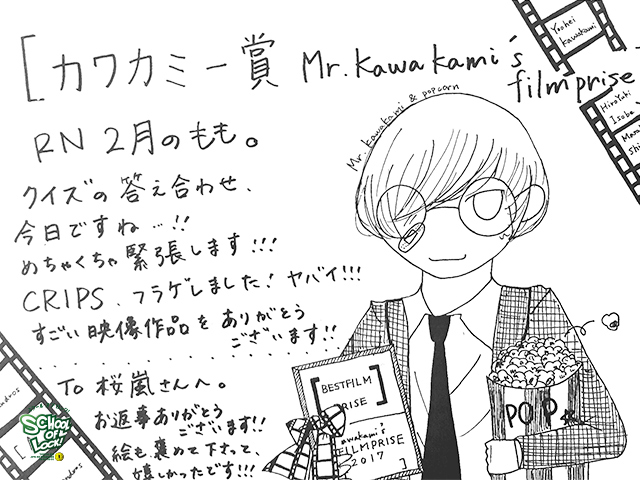 [カワカミー賞 Mr.Kawakami's
filmprise
Mr. Kawakami & popcorn
Yoohei
kawakami
HiroYuki
Isobe
RN 2月のもも。
クイズの答え合わせ、
今日ですね…!!
めちゃくちゃ緊張します!!!
CRIPS、フラゲしました! ヤバイ!!!
すごい映像作品を ありがとう
ございます!!
To 桜嵐さんへ。
お返事ありがとう
ございます!!
絵も褒めて下さって、
嬉しかったです!!!
[BESTFILM
PRISE]
awakami's
FILMPRISE
2017
POP
SCHOOL
OF
LOCK!